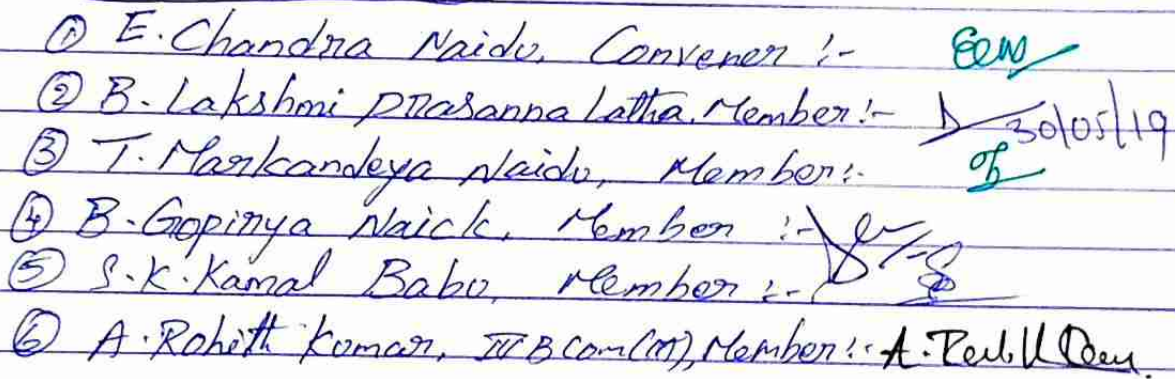 ① E. Chandra Naidu, Convener :-
② B. Lakshmi Prasanna Latha, Member :- 30/05/19
③ T. Markandeya Naidu, Member :-
④ B. Gopinya Naick, Member :-
⑤ S.K. Kamal Babu, Member :-
⑥ A. Rohith Kumar, III B Com (M), Member :- A.